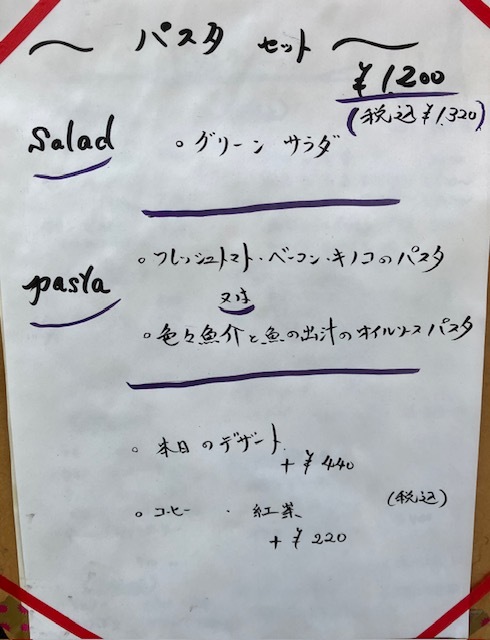 〜 パスタ セット 〜
¥1,200
(税込¥1,320)
Salad
○ グリーン サラダ
pasta
○ フレッシュトマト・ベーコン・キノコのパスタ
又は
○ 色々魚介と魚の出汁のオイルソースパスタ
○ 本日のデザート
+¥440
○ コーヒー ・ 紅茶
(税込)
+¥220